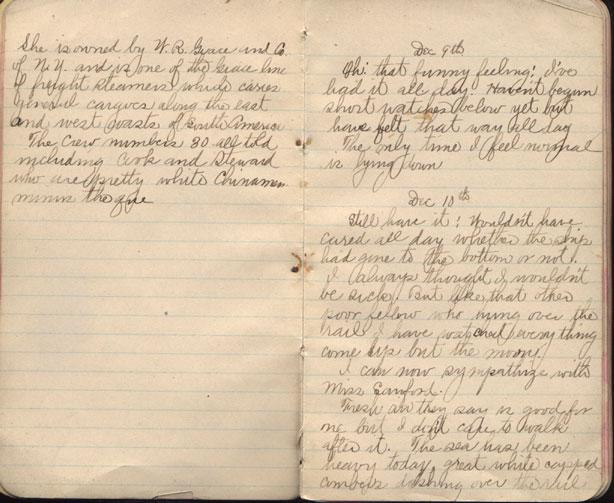 She is owned by W. R. Grace and Co.
of N.Y. and is one of the Grace line
of freight steamers, which carries
general cargoes along the east
and west coasts of South America
The Crew numbers 30 all told
including Cook and Steward
who are pretty white Chinamen
minus the
Dec 9th
Oh! that funny feeling! I've
had it all day. Haven't begun
short watches below yet but
have felt that way all day
The only time I feel normal
is lying down
Dec 10th
Still have it! Wouldn't have
cared all day whether the ship
had gone to the bottom or not.
I always thought I wouldn't
be sick. But like that other
poor fellow who hung over the
rail I have watched everything
come up but the moon.
I can now sympathize with
Miss Sanford.
Fresh air they say is good for
me but I don't care to walk
after it. The sea has been
heavy today, great white capped
combers dashing over the rail